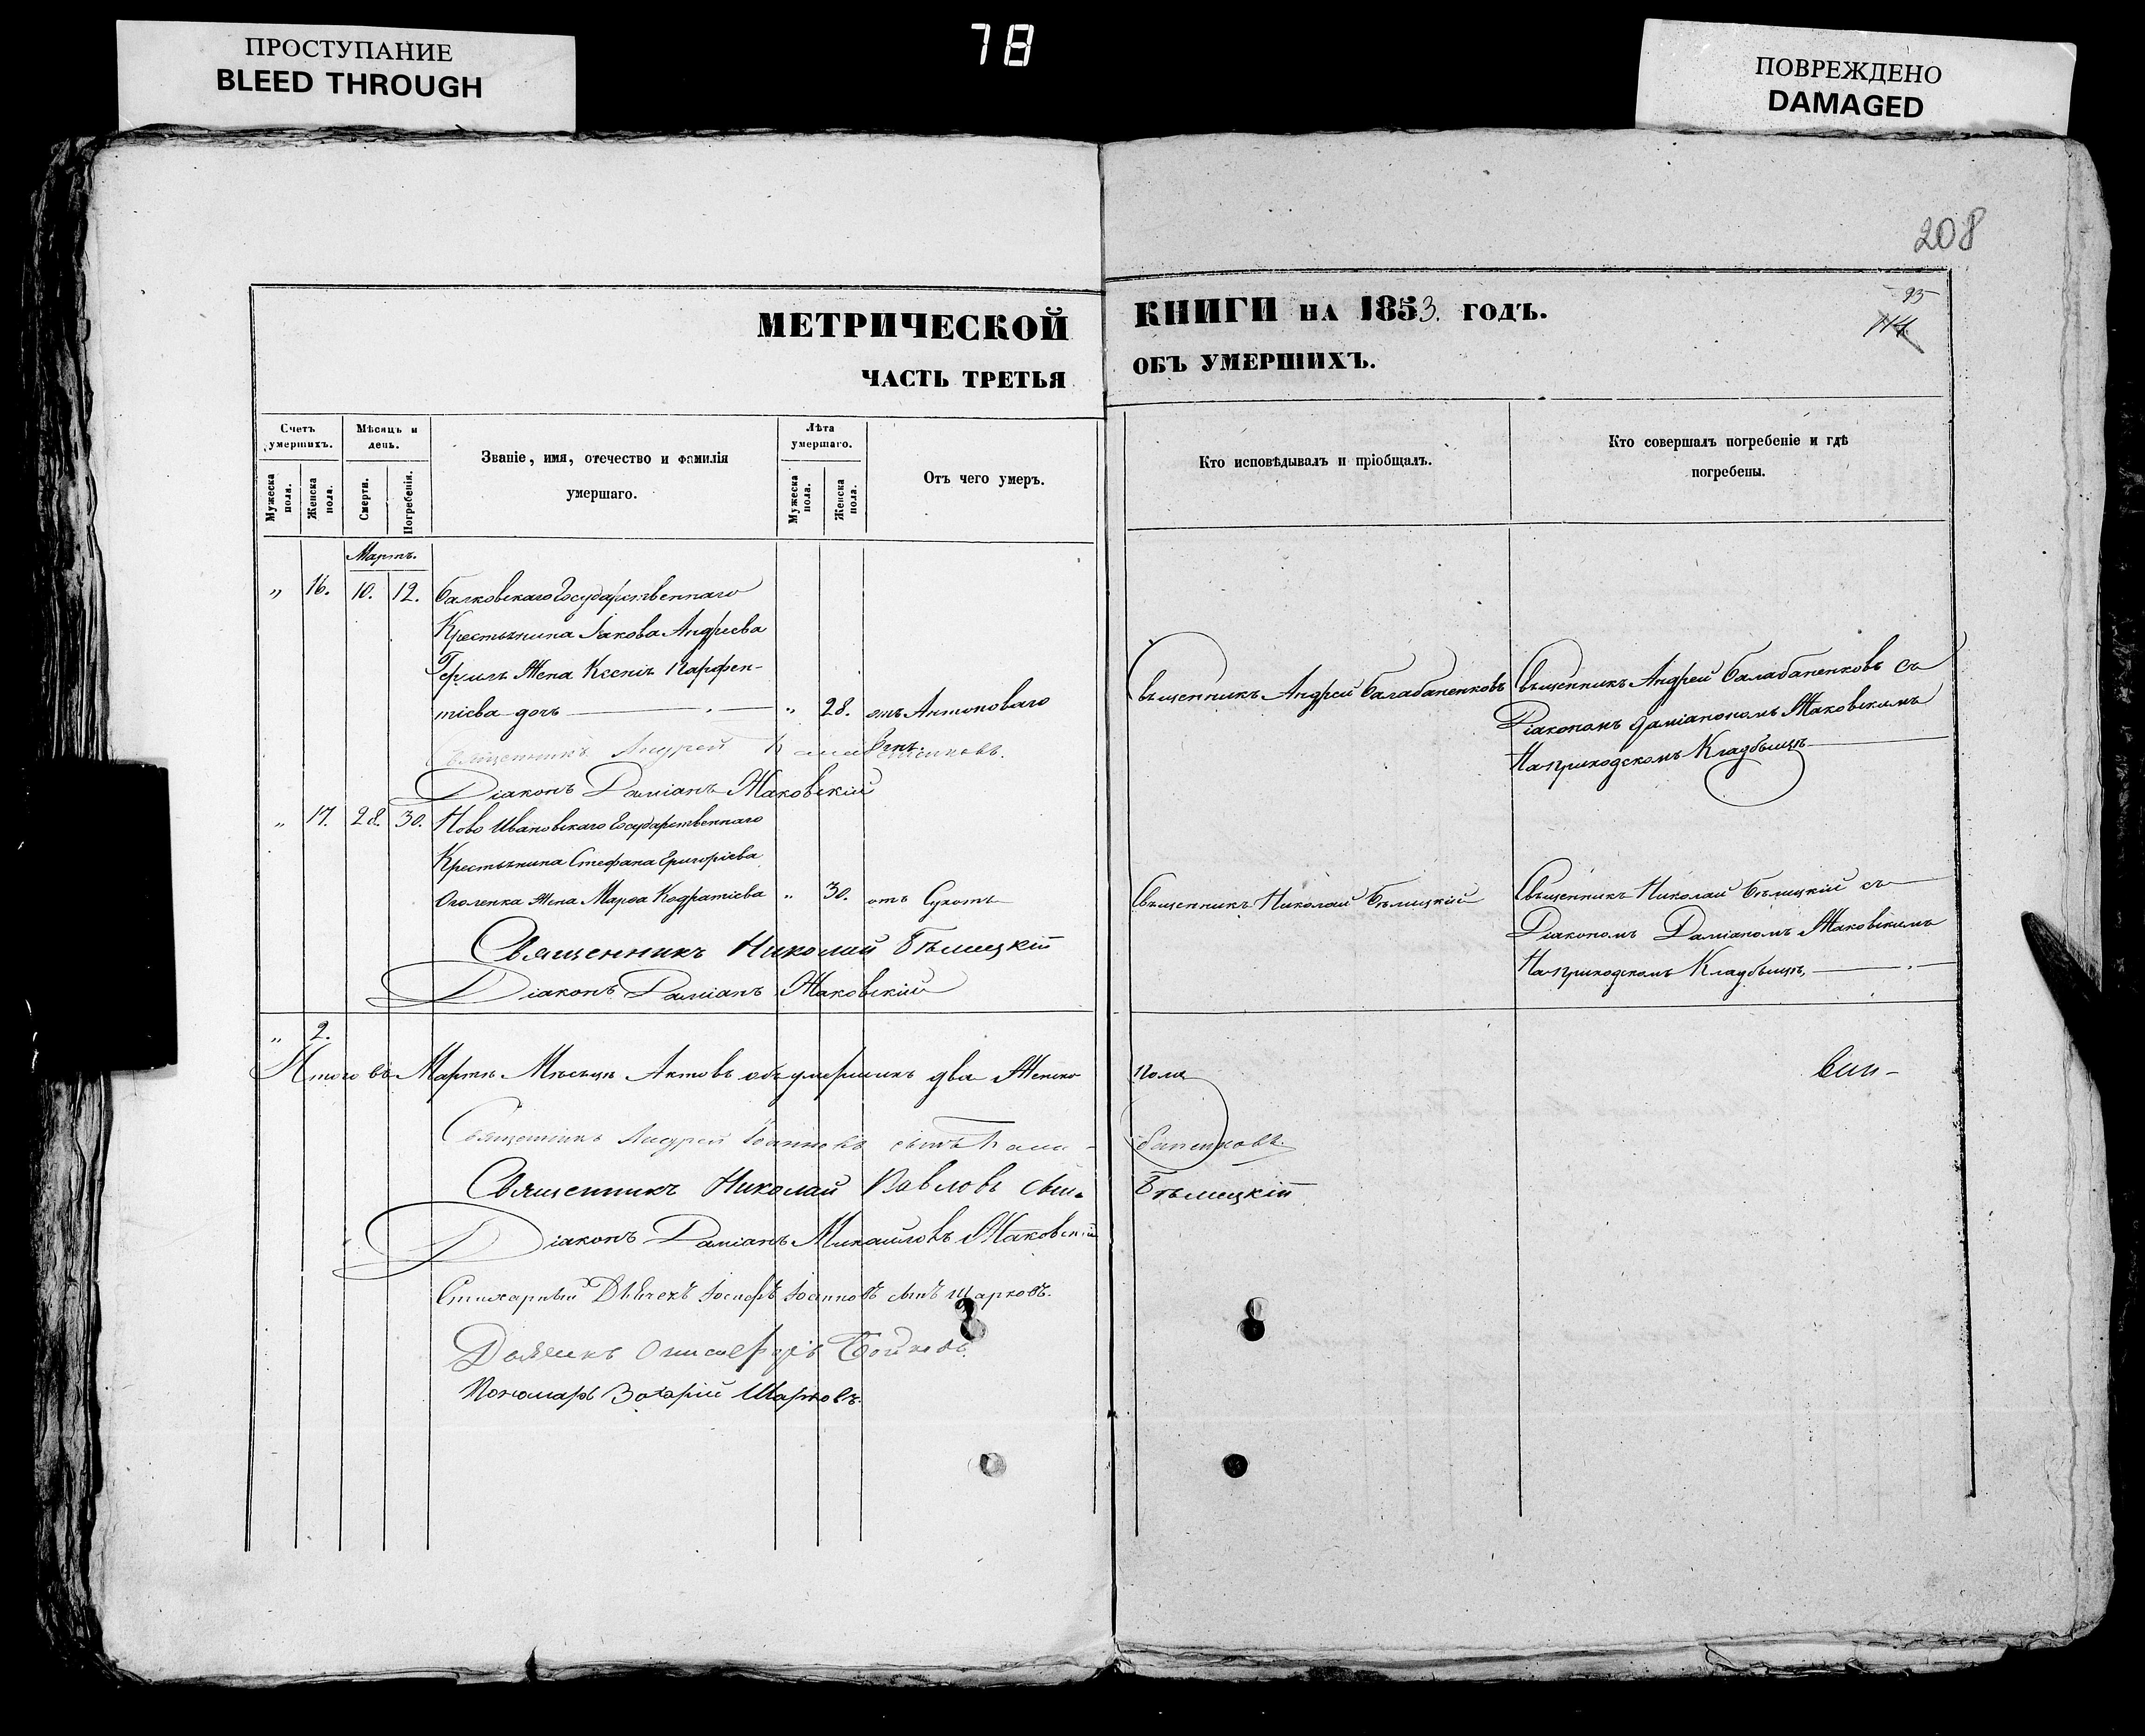 ПРОСТУПАНИЕ
BLEED THROUGH
78
ПОВРЕЖДЕНО
DAMAGED
208
95
114
МЕТРИЧЕСКОЙ КНИГИ НА 1853. ГОДЪ.
ЧАСТЬ ТРЕТЬЯ ОБЪ УМЕРШИХЪ.
Счетъ умершихъ.
Мѣсяцъ и день.
Званіе, имя, отечество и фамилія умершаго.
Лѣта умершаго.
Отъ чего умеръ.
Кто исповѣдывалъ и пріобщалъ.
Кто совершалъ погребеніе и гдѣ погребены.
Мужеска пола.
Женска пола.
Смерти.
Погребенія.
Мужеска пола.
Женска пола.
Мартъ.
" 16. 10. 12. Балковскаго Государственнаго
Крестьянина Іакова Андреева
Жена Ксенія Парфен-
тіева дочь " 28. отъ Антоноваго
огня.
Священникъ Андрей Балабаненковъ
Священникъ Андрей Балабаненковъ съ
Діакономъ Даміаномъ Жаковскимъ
На приходскомъ Кладбищѣ
Священникъ Андрей Балабаненковъ.
Діаконъ Даміанъ Жаковскій
" 17. 28. 30. Ново Ивановскаго Государственнаго
Крестьянина Стефана Григоріева
Оголенка Жена Марѳа Кодратіева " 30. отъ Сухотъ
Священникъ Николай Бѣлицкій
Священникъ Николай Бѣлицкій съ
Діакономъ Даміаномъ Жаковскимъ
На приходскомъ Кладбищѣ,
Священникъ Николай Бѣлицкій
Діаконъ Даміанъ Жаковскій
" 2.
Итого въ Мартѣ Мѣсяцѣ Актовъ объ умершихъ два Женско Пола
Священникъ Андрей Іоанновъ сынъ Бала- баненковъ.
Священникъ Николай Павловъ сын. Бѣлицкій
Діаконъ Даміанъ Михаиловъ Жаковскій
Стихарный Дьячекъ Іосифъ Іоанновъ сынъ Шарковъ.
Дьячекъ Онисифоръ Бойковъ.
Пономарь Захарій Шарковъ.